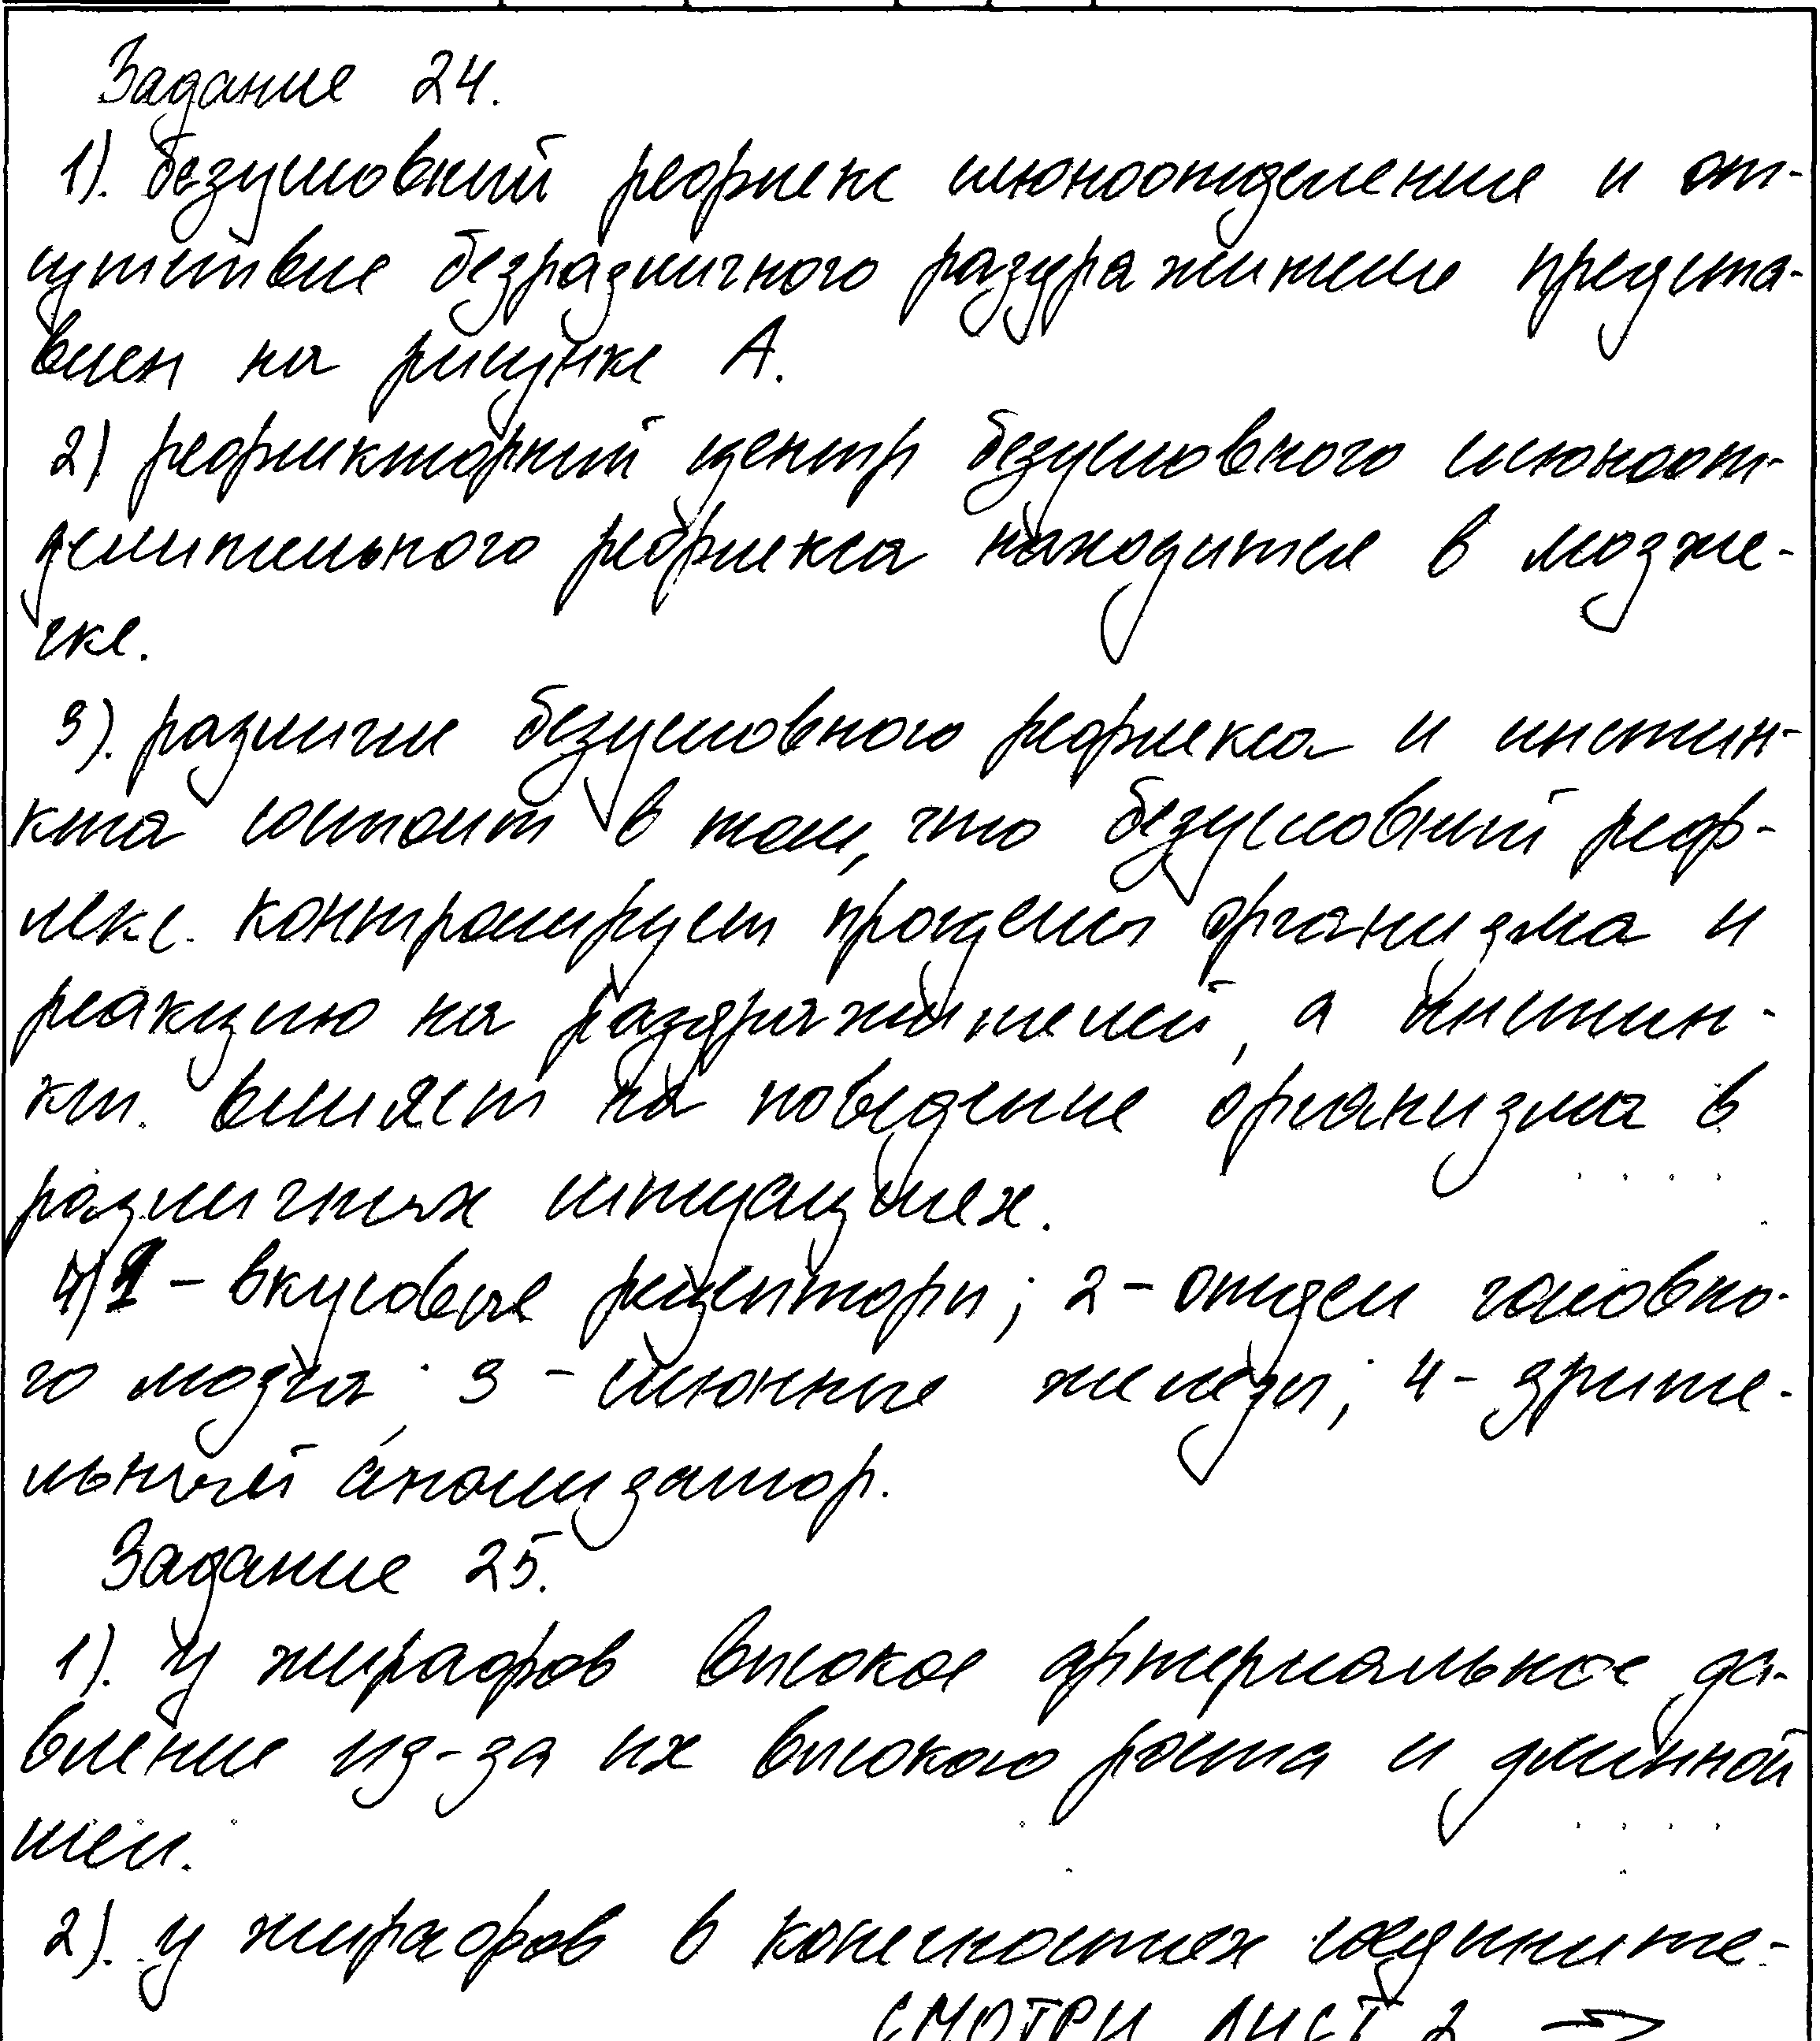 Задание 24.
1). безусловный рефлекс слюноотделение и от-
сутствие безразличного раздражителе представ-
влен на рисунке А.
2) рефлекторный центр безусловного слюноот-
делительного рефлекса находится в мозже-
чке.
3). различие безусловного рефлекса и инстин-
кта состоит в том, что безусловный реф-
лекс контролирует процессы организма и
реакцию на раздражителей, а инстин-
кт. влияет на поведение организма в
различных ситуациях.
4) 1 - вкусовые рецепторы; 2 - отдел головно-
го мозга; 3 - слюнные железы; 4 - зрите-
льный анализатор.
Задание 25.
1). У жирафов высокое артериальное да-
вление из-за их высокого роста и длинной
шеи.
2). у жирафов в конечностях соедините-
СМОТРИ ЛИСТ 2 →